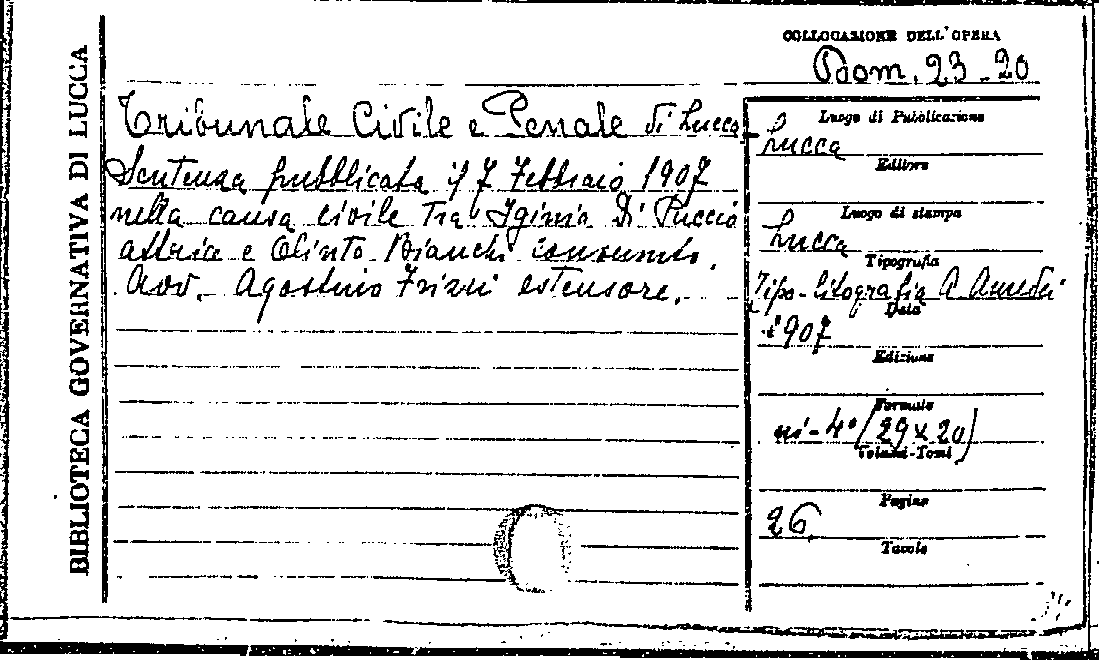 BIBLIOTECA GOVERNATIVA DI LUCCA
COLLOCAZIONE DELL'OPERA
Bom. 23-20
Tribunale Civile e Penale di Lucca
Sentenza pubblicata il 7 Febbraio 1907
nella causa civile tra Iginia Di Puccio
attrice e Olinto Bianchi convenuto.
Avv. Agostino Frizzi estensore.
Luogo di Pubblicazione
Lucca
Editore
Luogo di stampa
Lucca
Tipografia
Tipo-litografia A. Amedei
Data
1907
Edizione
Formato
in-4° (29 x 20)
Volumi-Tomi
Pagine
26.
Tavole